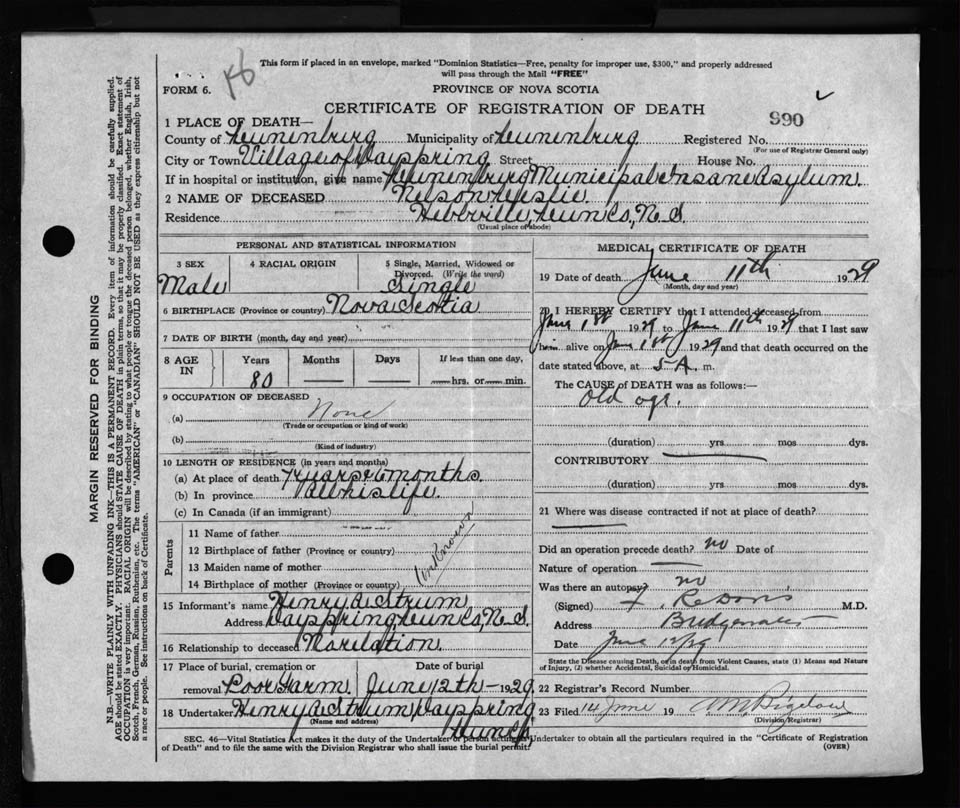 46
This form if placed in an envelope, marked "Dominion Statistics—Free, penalty for improper use, $300," and properly addressed
will pass through the Mail "FREE"
FORM 6.
PROVINCE OF NOVA SCOTIA
CERTIFICATE OF REGISTRATION OF DEATH
990
1 PLACE OF DEATH—
County of Lunenburg Municipality of Lunenburg Registered No.
(For use of Registrar General only)
City or Town Village of Dayspring Street House No.
If in hospital or institution, give name Lunenburg Municipal Insane Asylum.
2 NAME OF DECEASED Nelson
Residence Hebbville, Lun Co, N.S.
(Usual place of abode)
PERSONAL AND STATISTICAL INFORMATION
3 SEX 4 RACIAL ORIGIN 5 Single, Married, Widowed or
Divorced. (Write the word)
Male Single
6 BIRTHPLACE (Province or country) Nova Scotia
7 DATE OF BIRTH (month, day and year)
8 AGE IN Years Months Days If less than one day,
80 hrs. or min.
9 OCCUPATION OF DECEASED
(a) None
(Trade or occupation or kind of work)
(b)
(Kind of industry)
10 LENGTH OF RESIDENCE (in years and months)
(a) At place of death 7 years & 6 months.
(b) In province All his life.
(c) In Canada (if an immigrant)
Parents
11 Name of father
12 Birthplace of father (Province or country)
13 Maiden name of mother
14 Birthplace of mother (Province or country)
Unknown
15 Informant's name Henry A. Strum
Address Dayspring, Lun Co, N.S.
16 Relationship to deceased No relation.
17 Place of burial, cremation or Date of burial
removal Poor Farm. June 12th – 1929
18 Undertaker Henry A. Strum, Dayspring
(Name and address)
Lun Co
MEDICAL CERTIFICATE OF DEATH
19 Date of death June 11th 1929
(Month, day and year)
20 I HEREBY CERTIFY that I attended deceased from
June 1st 1929 to June 11th 1929 that I last saw
him alive on June 1st 1929 and that death occurred on the
date stated above, at 5 A. m.
The CAUSE OF DEATH was as follows:—
Old age.
(duration) yrs mos dys.
CONTRIBUTORY
(duration) yrs mos dys.
21 Where was disease contracted if not at place of death?
Did an operation precede death? no Date of
Nature of operation
Was there an autopsy? no
(Signed) M.D.
Address Bridgewater
Date June 12/29
State the Disease causing Death, or in death from Violent Causes, state (1) Means and Nature
of Injury, (2) whether Accidental, Suicidal or Homicidal.
22 Registrar's Record Number
23 Filed 14 June 19 Bigelow
(Division Registrar)
SEC. 46—Vital Statistics Act makes it the duty of the Undertaker or person acting as Undertaker to obtain all the particulars required in the "Certificate of Registration
of Death" and to file the same with the Division Registrar who shall issue the burial permit.
(OVER)
MARGIN RESERVED FOR BINDING
N.B.—WRITE PLAINLY WITH UNFADING INK—THIS IS A PERMANENT RECORD. Every item of information should be carefully supplied.
AGE should be stated EXACTLY. PHYSICIANS should STATE CAUSE OF DEATH in plain terms, so that it may be properly classified. Exact statement of
OCCUPATION is very important. RACIAL ORIGIN will be described by stating to what people or tongue the deceased person belonged, whether English, Irish,
Scotch, French, German, Russian, Ruthenian, etc. The terms "AMERICAN" or "CANADIAN" SHOULD NOT BE USED as they express citizenship but not
a race or people. See instructions on back of Certificate.